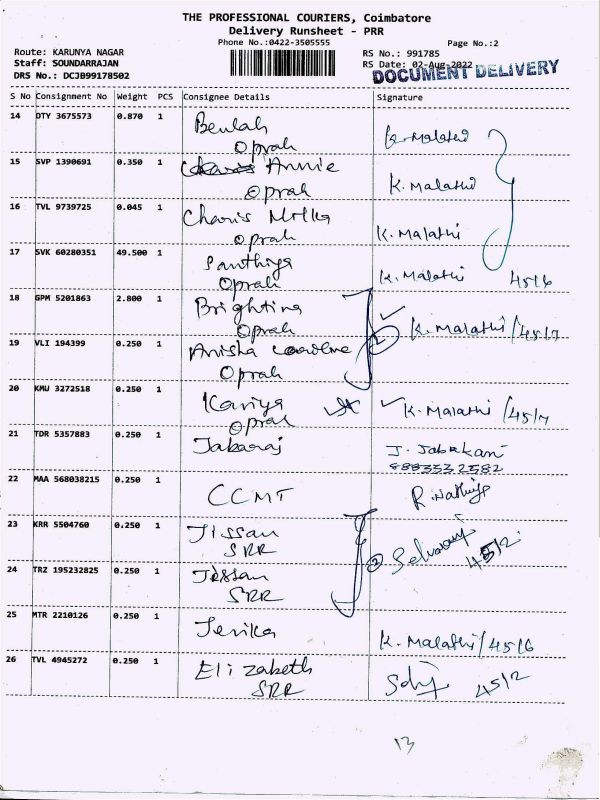 THE PROFESSIONAL COURIERS, Coimbatore
Delivery Runsheet - PRR
Phone No.:0422-3505555
Page No.:2
Route: KARUNYA NAGAR
RS No.: 991785
Staff: SOUNDARRAJAN
RS Date: 02-Aug-2022
DRS No.: DCJB99178502
DOCUMENT DELIVERY
S No Consignment No Weight PCS Consignee Details Signature
14 DTY 3675573 0.870 1 Beulah K. Malathi
Oprah
15 SVP 1390691 0.350 1 Annie K. Malathi
Oprah
16 TVL 9739725 0.045 1 Charis Milka K. Malathi
Oprah
17 SVK 60280351 49.500 1 Santhiya K. Malathi 4516
Oprah
18 GPM 5201863 2.800 1 Brightina K. Malathi/4517
Oprah
19 VLI 194399 0.250 1 Anisha Caroline
Oprah
20 KMU 3272518 0.250 1 Kaviya K. Malathi /4517
Oprah
21 TDR 5357883 0.250 1 Jabaraj J. Jabakani
8883332582
22 MAA 568038215 0.250 1 CCMT
23 KRR 5504760 0.250 1 Jissan 2 Selvaraj 4512
SRR
24 TRZ 195232825 0.250 1 Jissan
SRR
25 MTR 2210126 0.250 1 Jerika K. Malathi/4516
26 TVL 4945272 0.250 1 Elizabeth 4512
SRR
13